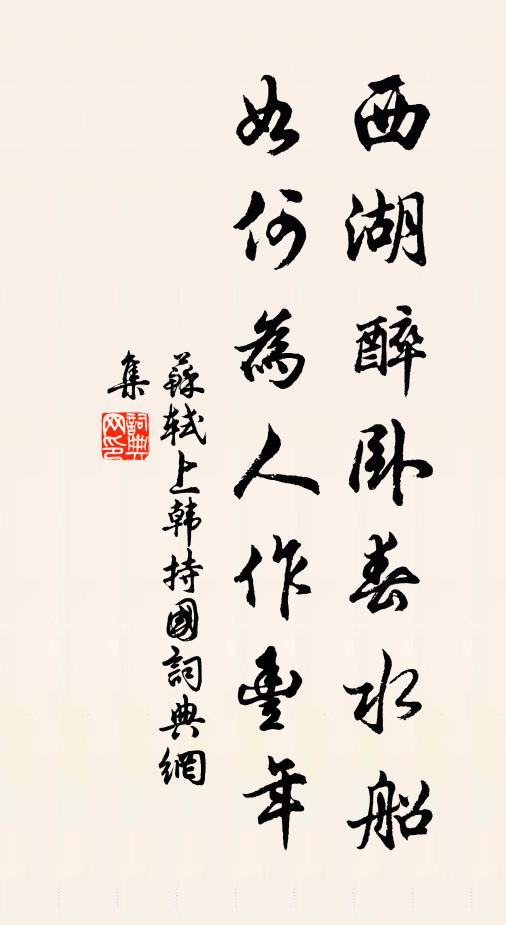 西湖醉卧春水船
如何為人作豐年
蘇軾上韩持國詞典網
集
詞典網印